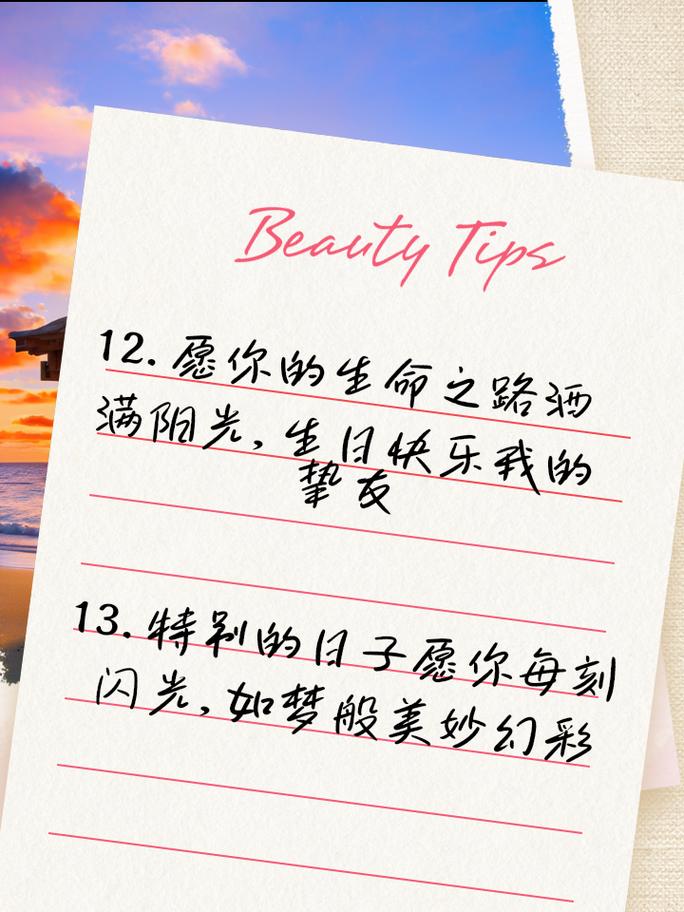 Beauty Tips
12. 愿你的生命之路洒
满阳光，生日快乐我的
挚友
13. 特别的日子愿你每刻
闪光，如梦般美妙幻彩